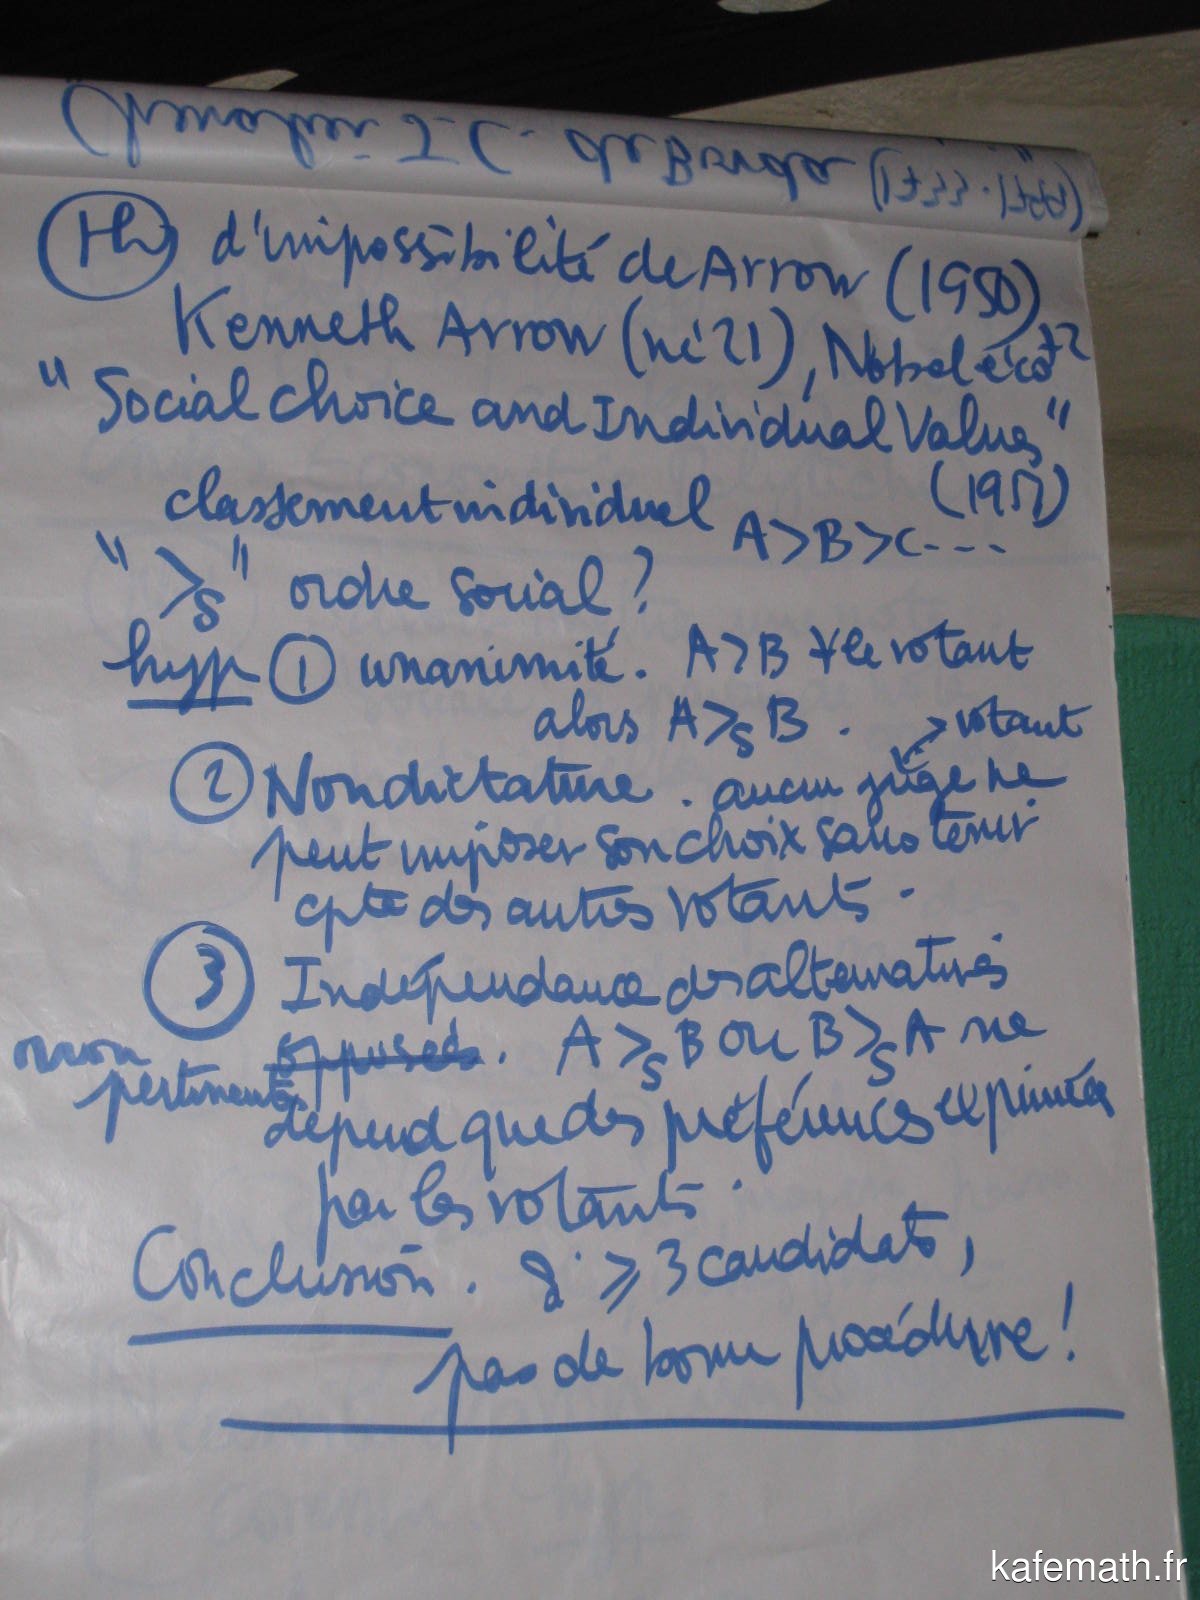 Chevalier J.C. de Borda (1733-1799)
Th d'impossibilité de Arrow (1950)
Kenneth Arrow (né 21), Nobel éco 72
"Social choice and Individual Values"
(1951)
classement individuel A>B>C---
">s" ordre social ?
hyp ① unanimité. A>B ∀ le votant
alors A>s B.
→ votant
② Non dictature. aucun juge ne
peut imposer son choix sans tenir
cpte des autres votants.
③ Indépendance des alternatives
non pertinentes opposées. A>s B ou B>s A ne
dépend que des préférences exprimées
par les votants.
Conclusion. Si ≥ 3 candidats,
pas de bonne procédure !
kafemath.fr